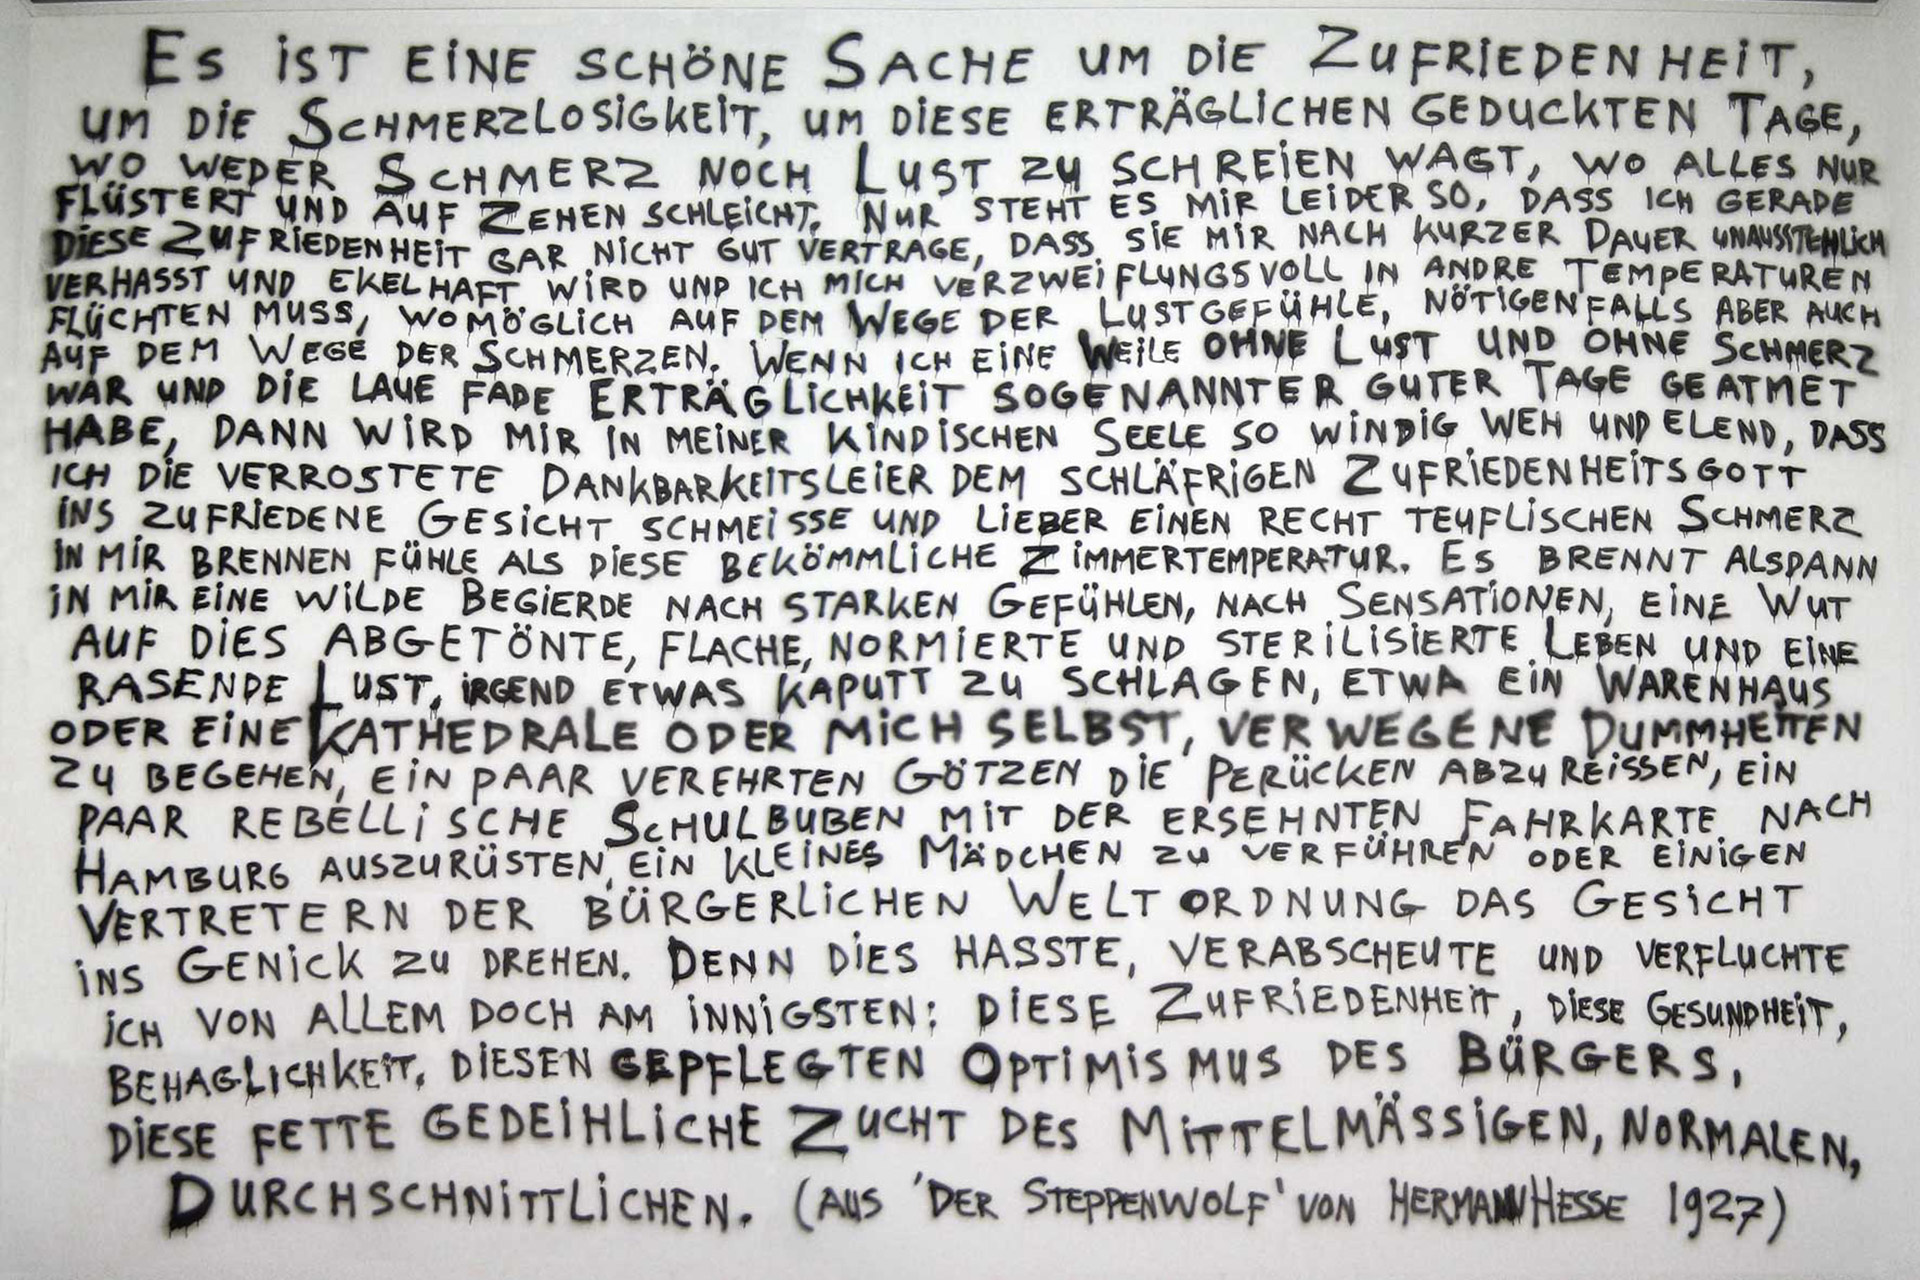 ES IST EINE SCHÖNE SACHE UM DIE ZUFRIEDENHEIT,
UM DIE SCHMERZLOSIGKEIT, UM DIESE ERTRÄGLICHEN GEDUCKTEN TAGE,
WO WEDER SCHMERZ NOCH LUST ZU SCHREIEN WAGT, WO ALLES NUR
FLÜSTERT UND AUF ZEHEN SCHLEICHT. NUR STEHT ES MIR LEIDER SO, DASS ICH GERADE
DIESE ZUFRIEDENHEIT GAR NICHT GUT VERTRAGE, DASS SIE MIR NACH KURZER DAUER UNAUSSTEHLICH
VERHASST UND EKELHAFT WIRD UND ICH MICH VERZWEIFLUNGSVOLL IN ANDRE TEMPERATUREN
FLÜCHTEN MUSS, WOMÖGLICH AUF DEM WEGE DER LUSTGEFÜHLE, NÖTIGENFALLS ABER AUCH
AUF DEM WEGE DER SCHMERZEN. WENN ICH EINE WEILE OHNE LUST UND OHNE SCHMERZ
WAR UND DIE LAUE FADE ERTRÄGLICHKEIT SOGENANNTER GUTER TAGE GEATMET
HABE, DANN WIRD MIR IN MEINER KINDISCHEN SEELE SO WINDIG WEH UND ELEND, DASS
ICH DIE VERROSTETE DANKBARKEITSLEIER DEM SCHLÄFRIGEN ZUFRIEDENHEITSGOTT
INS ZUFRIEDENE GESICHT SCHMEISSE UND LIEBER EINEN RECHT TEUFLISCHEN SCHMERZ
IN MIR BRENNEN FÜHLE ALS DIESE BEKÖMMLICHE ZIMMERTEMPERATUR. ES BRENNT ALSDANN
IN MIR EINE WILDE BEGIERDE NACH STARKEN GEFÜHLEN, NACH SENSATIONEN, EINE WUT
AUF DIES ABGETÖNTE, FLACHE, NORMIERTE UND STERILISIERTE LEBEN UND EINE
RASENDE LUST, IRGEND ETWAS KAPUTT ZU SCHLAGEN, ETWA EIN WARENHAUS
ODER EINE KATHEDRALE ODER MICH SELBST, VERWEGENE DUMMHEITEN
ZU BEGEHEN, EIN PAAR VEREHRTEN GÖTZEN DIE PERÜCKEN ABZUREISSEN, EIN
PAAR REBELLISCHE SCHULBUBEN MIT DER ERSEHNTEN FAHRKARTE NACH
HAMBURG AUSZURÜSTEN, EIN KLEINES MÄDCHEN ZU VERFÜHREN ODER EINIGEN
VERTRETERN DER BÜRGERLICHEN WELTORDNUNG DAS GESICHT
INS GENICK ZU DREHEN. DENN DIES HASSTE, VERABSCHEUTE UND VERFLUCHTE
ICH VON ALLEM DOCH AM INNIGSTEN: DIESE ZUFRIEDENHEIT, DIESE GESUNDHEIT,
BEHAGLICHKEIT, DIESEN GEPFLEGTEN OPTIMISMUS DES BÜRGERS,
DIESE FETTE GEDEIHLICHE ZUCHT DES MITTELMÄSSIGEN, NORMALEN,
DURCHSCHNITTLICHEN. (AUS 'DER STEPPENWOLF' VON HERMANN HESSE 1927)